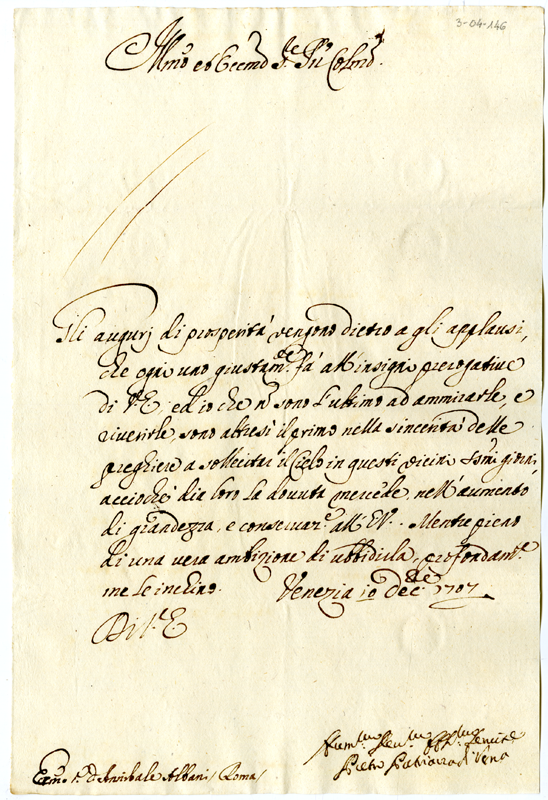 3-04-146
Ill.mo et Ecc.mo S.re P.ne Col.mo
Gli augurj di prosperità vengono dietro a gli applausi,
che ogni uno giustam.te fà all'insigni prerogative
di V.E., ed io che nõ sono l'ultimo ad ammirarle, e
riverirle, sono altresì il primo nella sincerità delle
preghiere a sollecitar il Cielo in questi vicini S.mi giorni,
acciochè dia loro la dovuta mercede, nell'aumento
di grandezza, e conservaz.e all'E.V. Mentre pieno
di una vera ambizione di ubbidirla, profondam.te
me le inchino. Venezia 10 Dec.bre 1707.
Di V.E.
Hum.mo Dev.mo Obb.mo Servit.e
Pietro Patriarca di Vena
Ecc.mo S. D. Anibale Albani / Roma /